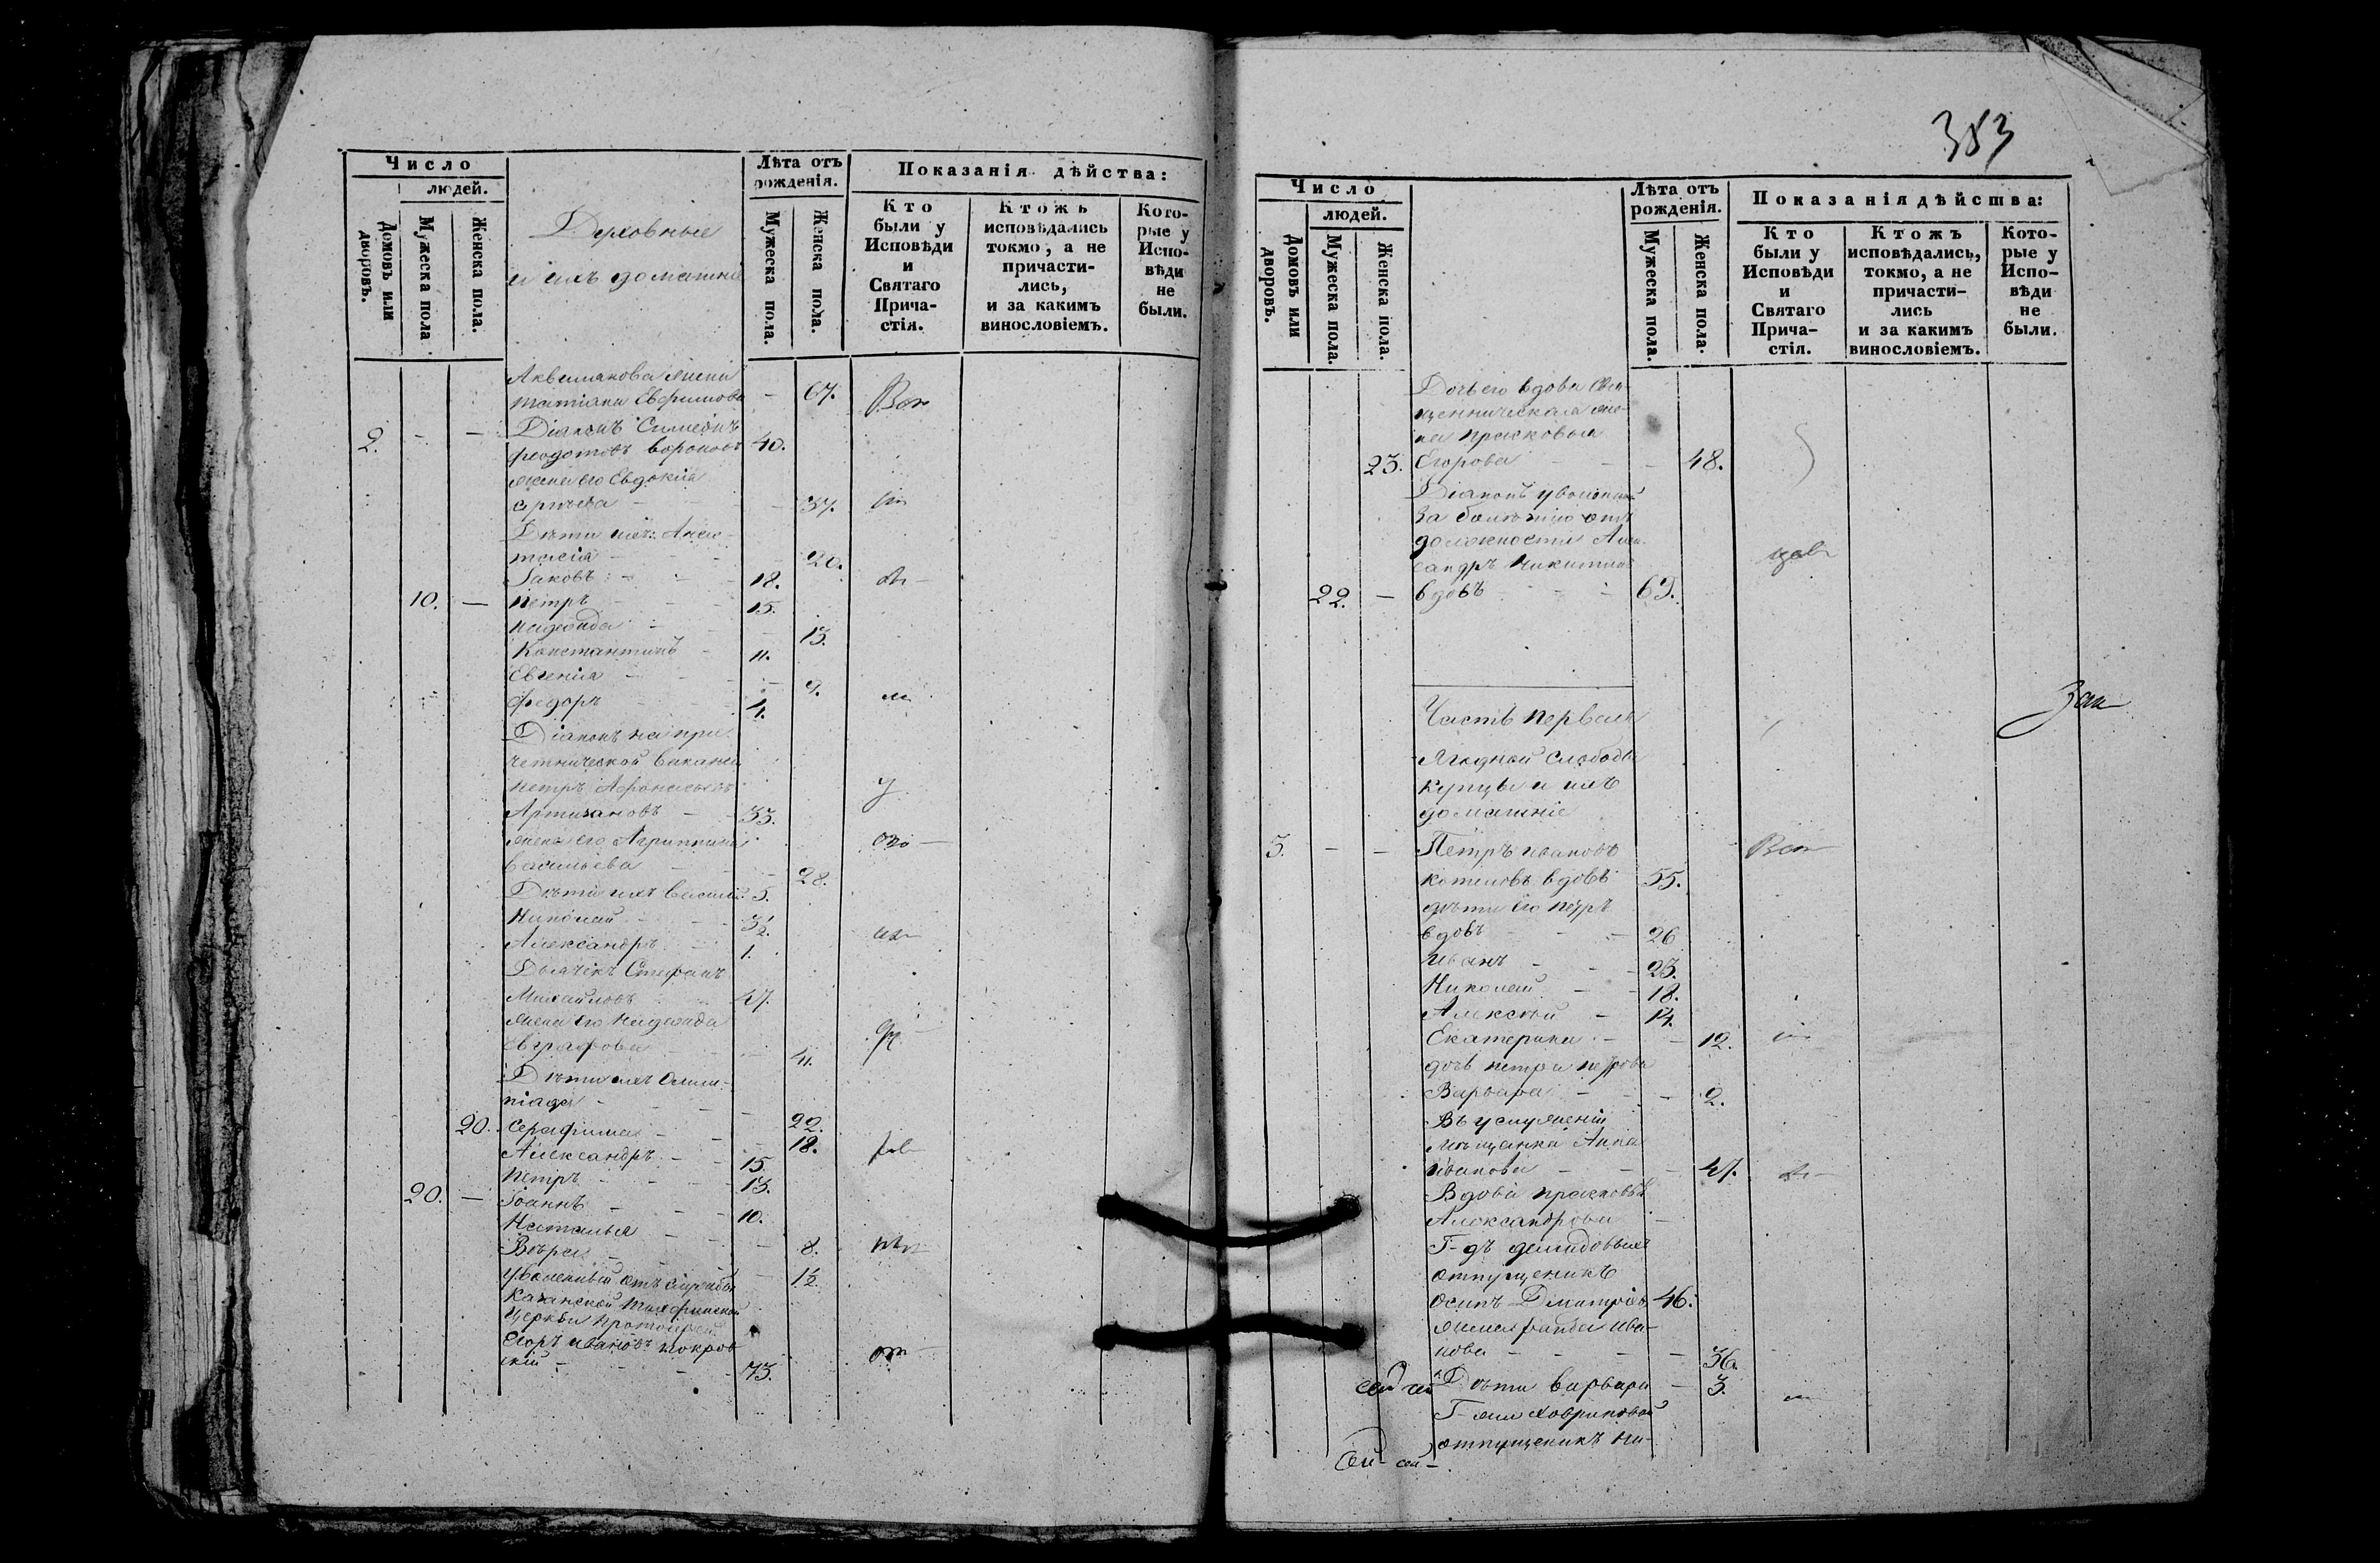 Число
людей.
Домовъ или дворовъ.
Мужеска пола
Женска пола.
Духовные
и ихъ домашніе
Лѣта отъ
рожденія.
Мужеска пола.
Женска пола.
Показанія дѣйства:
Кто
были у
Исповѣди
и
Святаго
Прича-
стія.
Ктожъ
исповѣдались
токмо, а не
причасти-
лись,
и за какимъ
винословіемъ.
Кото-
рые у
Испо-
вѣди
не
были.
жена
Татіана Евфимова - 67.
2. - - Діаконъ Симеонъ
Феодотовъ Вороновъ 40.
жена его Евдокія
- 37.
Дѣти ихъ: Анас-
тасія - 20.
Іаковъ - 18.
10. - Петръ 15.
Надежда - 13.
Константинъ - 11.
Евгенія - 9.
Федоръ 4.
Діаконъ на при-
четнической ваканси
Петръ Афонасьевъ
33.
жена его Агрипина
Васильева - 28.
Дѣти ихъ Василій 5.
Николай 3½.
Александръ 1.
Дьячекъ Стефанъ
Михайловъ 47.
жена его Надежда
Евграфова - 41.
Дѣти ихъ Олим-
піада - 22.
20. Серафима - 18.
Александръ - 15.
Петръ - 13.
20. - Іоаннъ - 10.
Наталья - 8.
Вѣра - 1½.
Уволенный отъ службы
Казанской Тихвинской
Церкви Протоіерей
Егоръ Ивановъ Покров
скій - 73.
383
Число
людей.
Домовъ или дворовъ.
Мужеска пола.
Женска пола.
Лѣта отъ
рожденія.
Мужеска пола.
Женска пола.
Показанія дѣйства:
Кто
были у
Исповѣди
и
Святаго
Прича-
стія.
Ктожъ
исповѣдались,
токмо, а не
причасти-
лись
и за какимъ
винословіемъ.
Кото-
рые у
Испо-
вѣди
не
были.
Дочь его вдова Свя-
щенническая же-
на Прасковья
23. Егорова - 48.
Діаконъ уволенный
за болѣзнію отъ
должности Алек-
сандръ Никитинъ
22. - вдовъ - 69.
Часть первая
Ягодной Слободы
купцы и ихъ
домашніе
3. - - Петръ Ивановъ
Котеловъ вдовъ 55.
дѣти его Петръ
вдовъ - 26
Иванъ - 23.
Николай - 18.
Алексѣй - 14.
Екатерина - 12.
дочь Петра Петрова
Варвара - 2.
Въ услуженіи
Мѣщанка Анна
Иванова - 47.
Вдова Прасковья
Александрова -
Г-дъ Демидовыхъ
отпущеникъ
Осипъ Дмитріевъ 46.
жена Ива-
нова - 36.
Дѣти Варвара - 3.
Г-жи Ховриновой
отпущеникъ Ни-